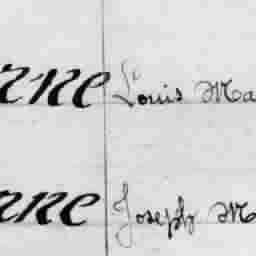 rne Louis Ma
rne Joseph M